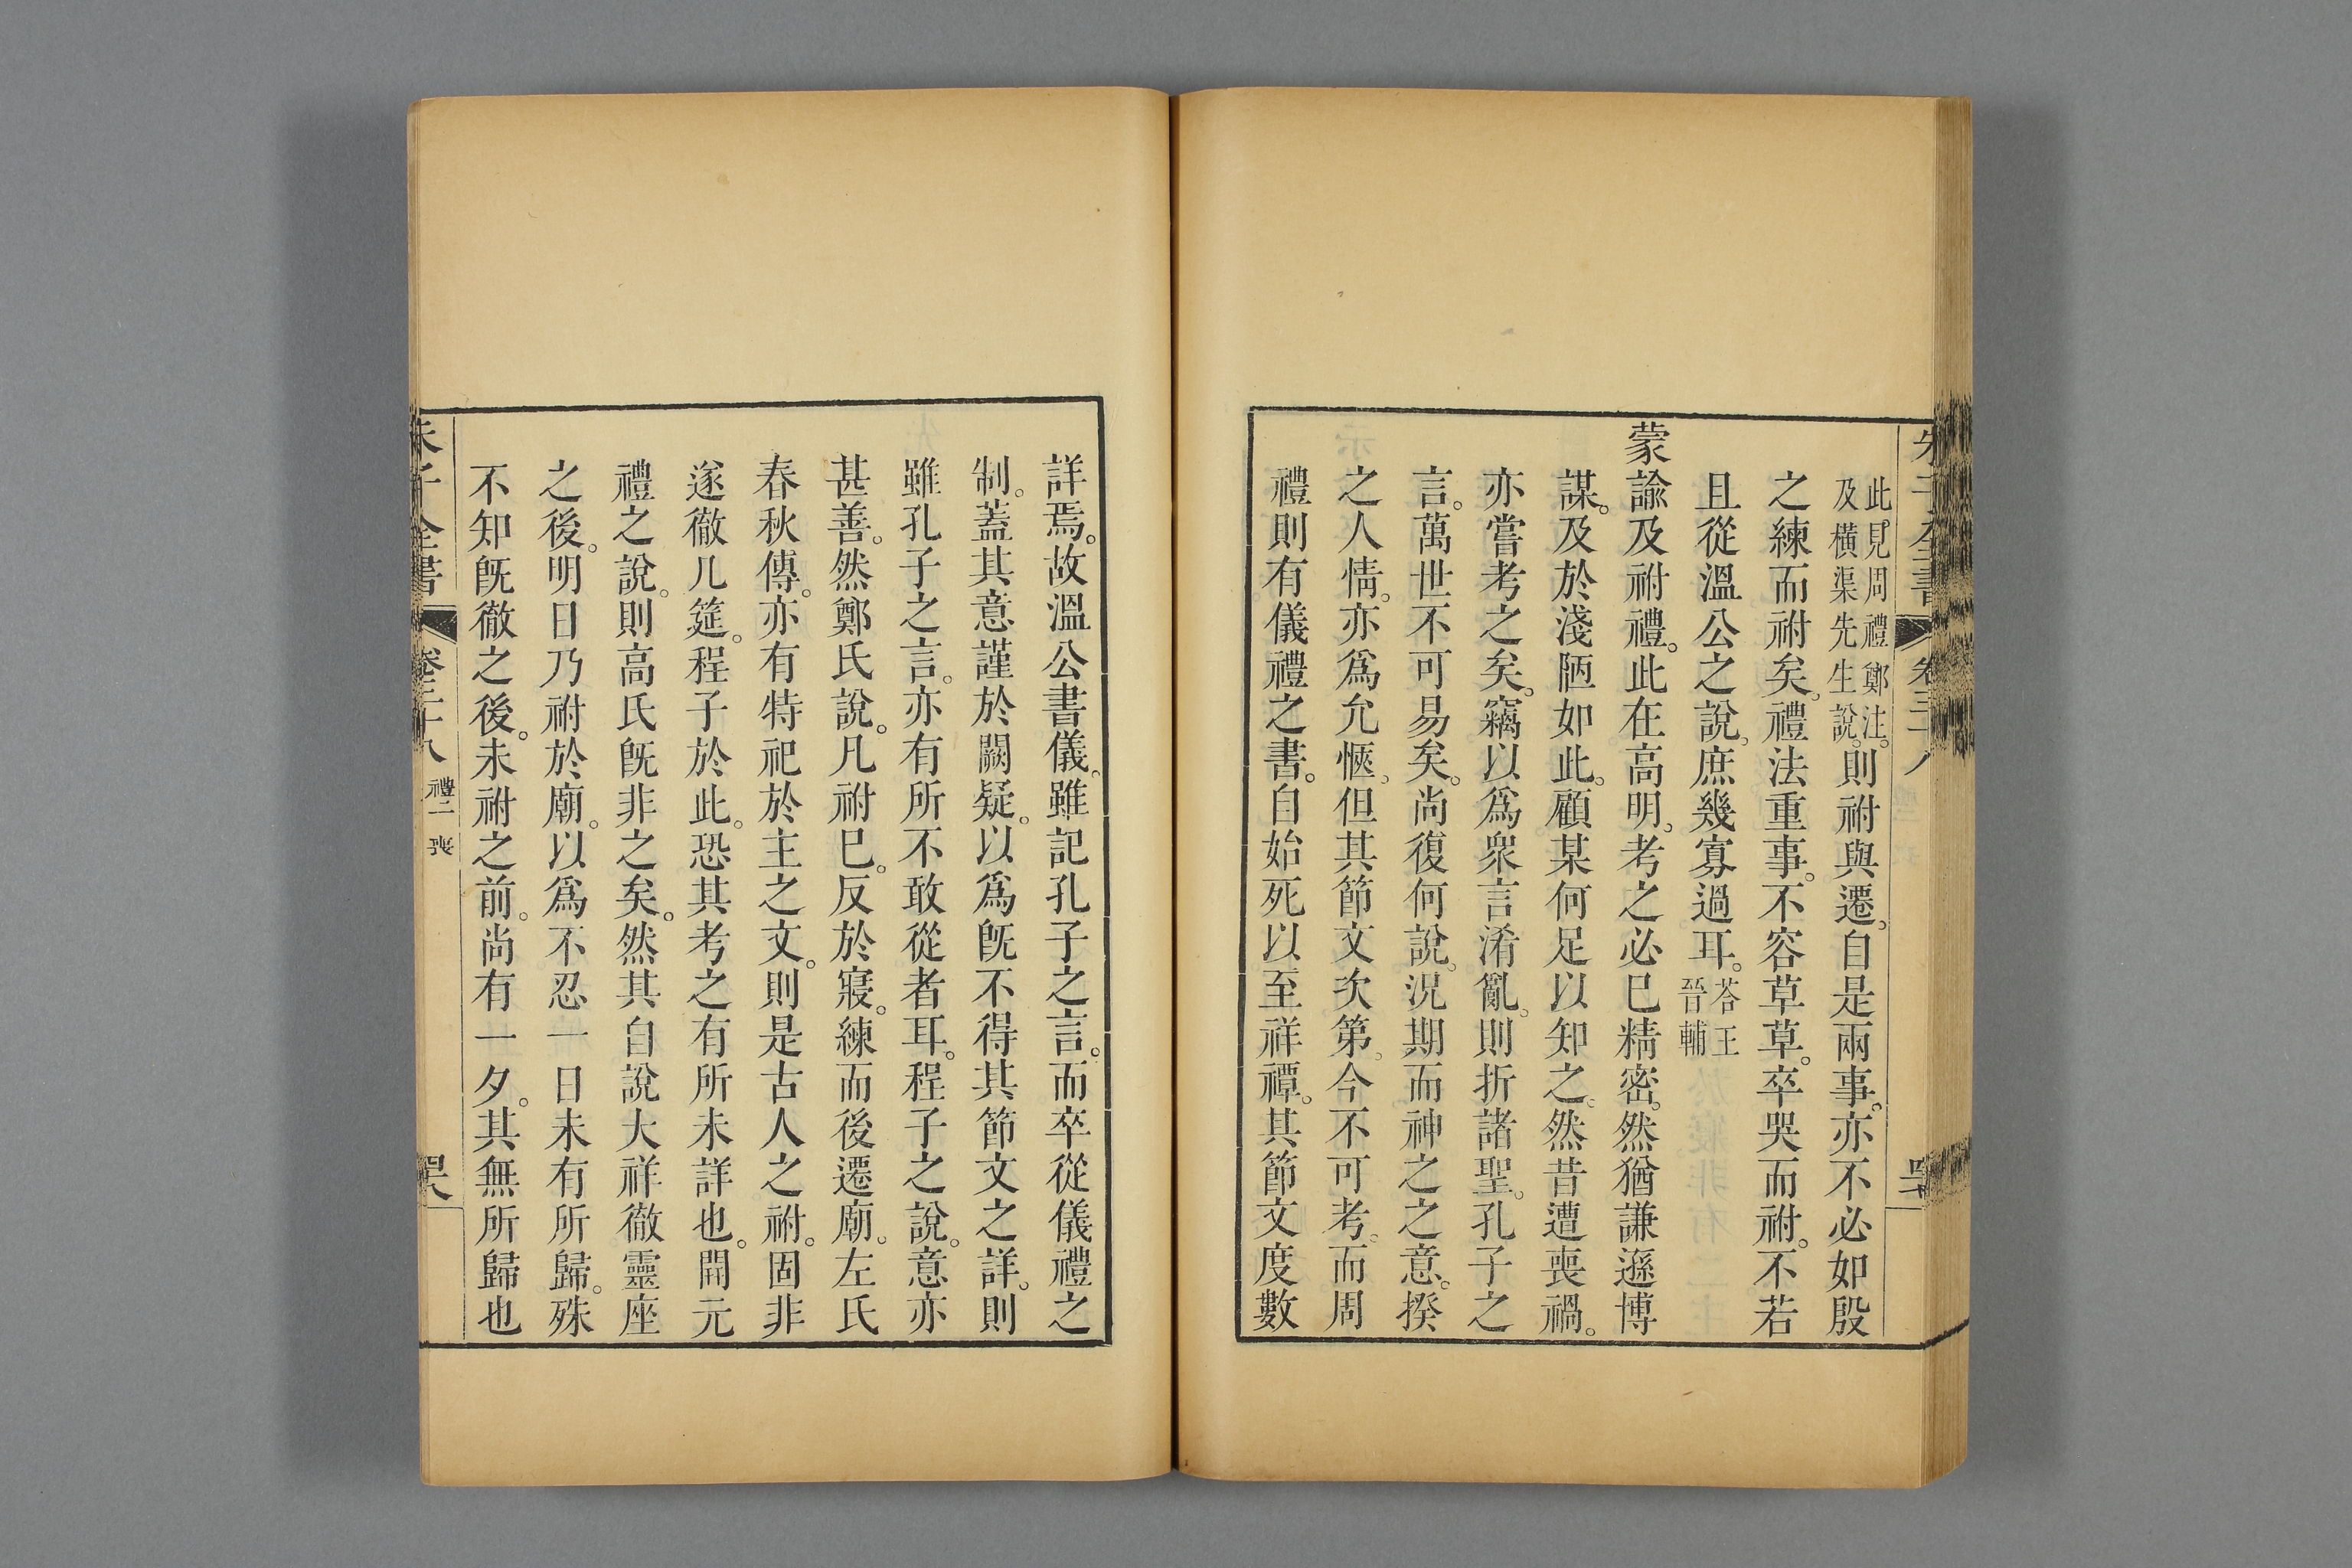 此見周禮鄭注。
及橫渠先生說。
則祔與遷。自是兩事。亦不必如殷
之練而祔矣。禮法重事。不容草草。卒哭而祔。不若
且從溫公之說。庶幾寡過耳。
荅王
晉輔
蒙諭及祔禮。此在高明。考之必已精密。然猶謙遜博
謀。及於淺陋如此。顧某何足以知之。然昔遭喪禍。
亦嘗考之矣。竊以爲衆言淆亂。則折諸聖。孔子之
言。萬世不可易矣。尚復何說。況期而神之之意。揆
之人情。亦爲允愜。但其節文次第。今不可考。而周
禮則有儀禮之書。自始死以至祥禫。其節文度數
詳焉。故溫公書儀。雖記孔子之言。而卒從儀禮之
制。蓋其意謹於闕疑。以爲旣不得其節文之詳。則
雖孔子之言。亦有所不敢從者耳。程子之說。意亦
甚善。然鄭氏說。凡祔已。反於寢。練而後遷廟。左氏
春秋傳。亦有特祀於主之文。則是古人之祔。固非
遂徹几筵。程子於此。恐其考之有所未詳也。開元
禮之說。則高氏旣非之矣。然其自說大祥徹靈座
之後。明日乃祔於廟。以爲不忍一日未有所歸。殊
不知旣徹之後。未祔之前。尚有一夕。其無所歸也
朱子全書
卷三十八
禮二
喪